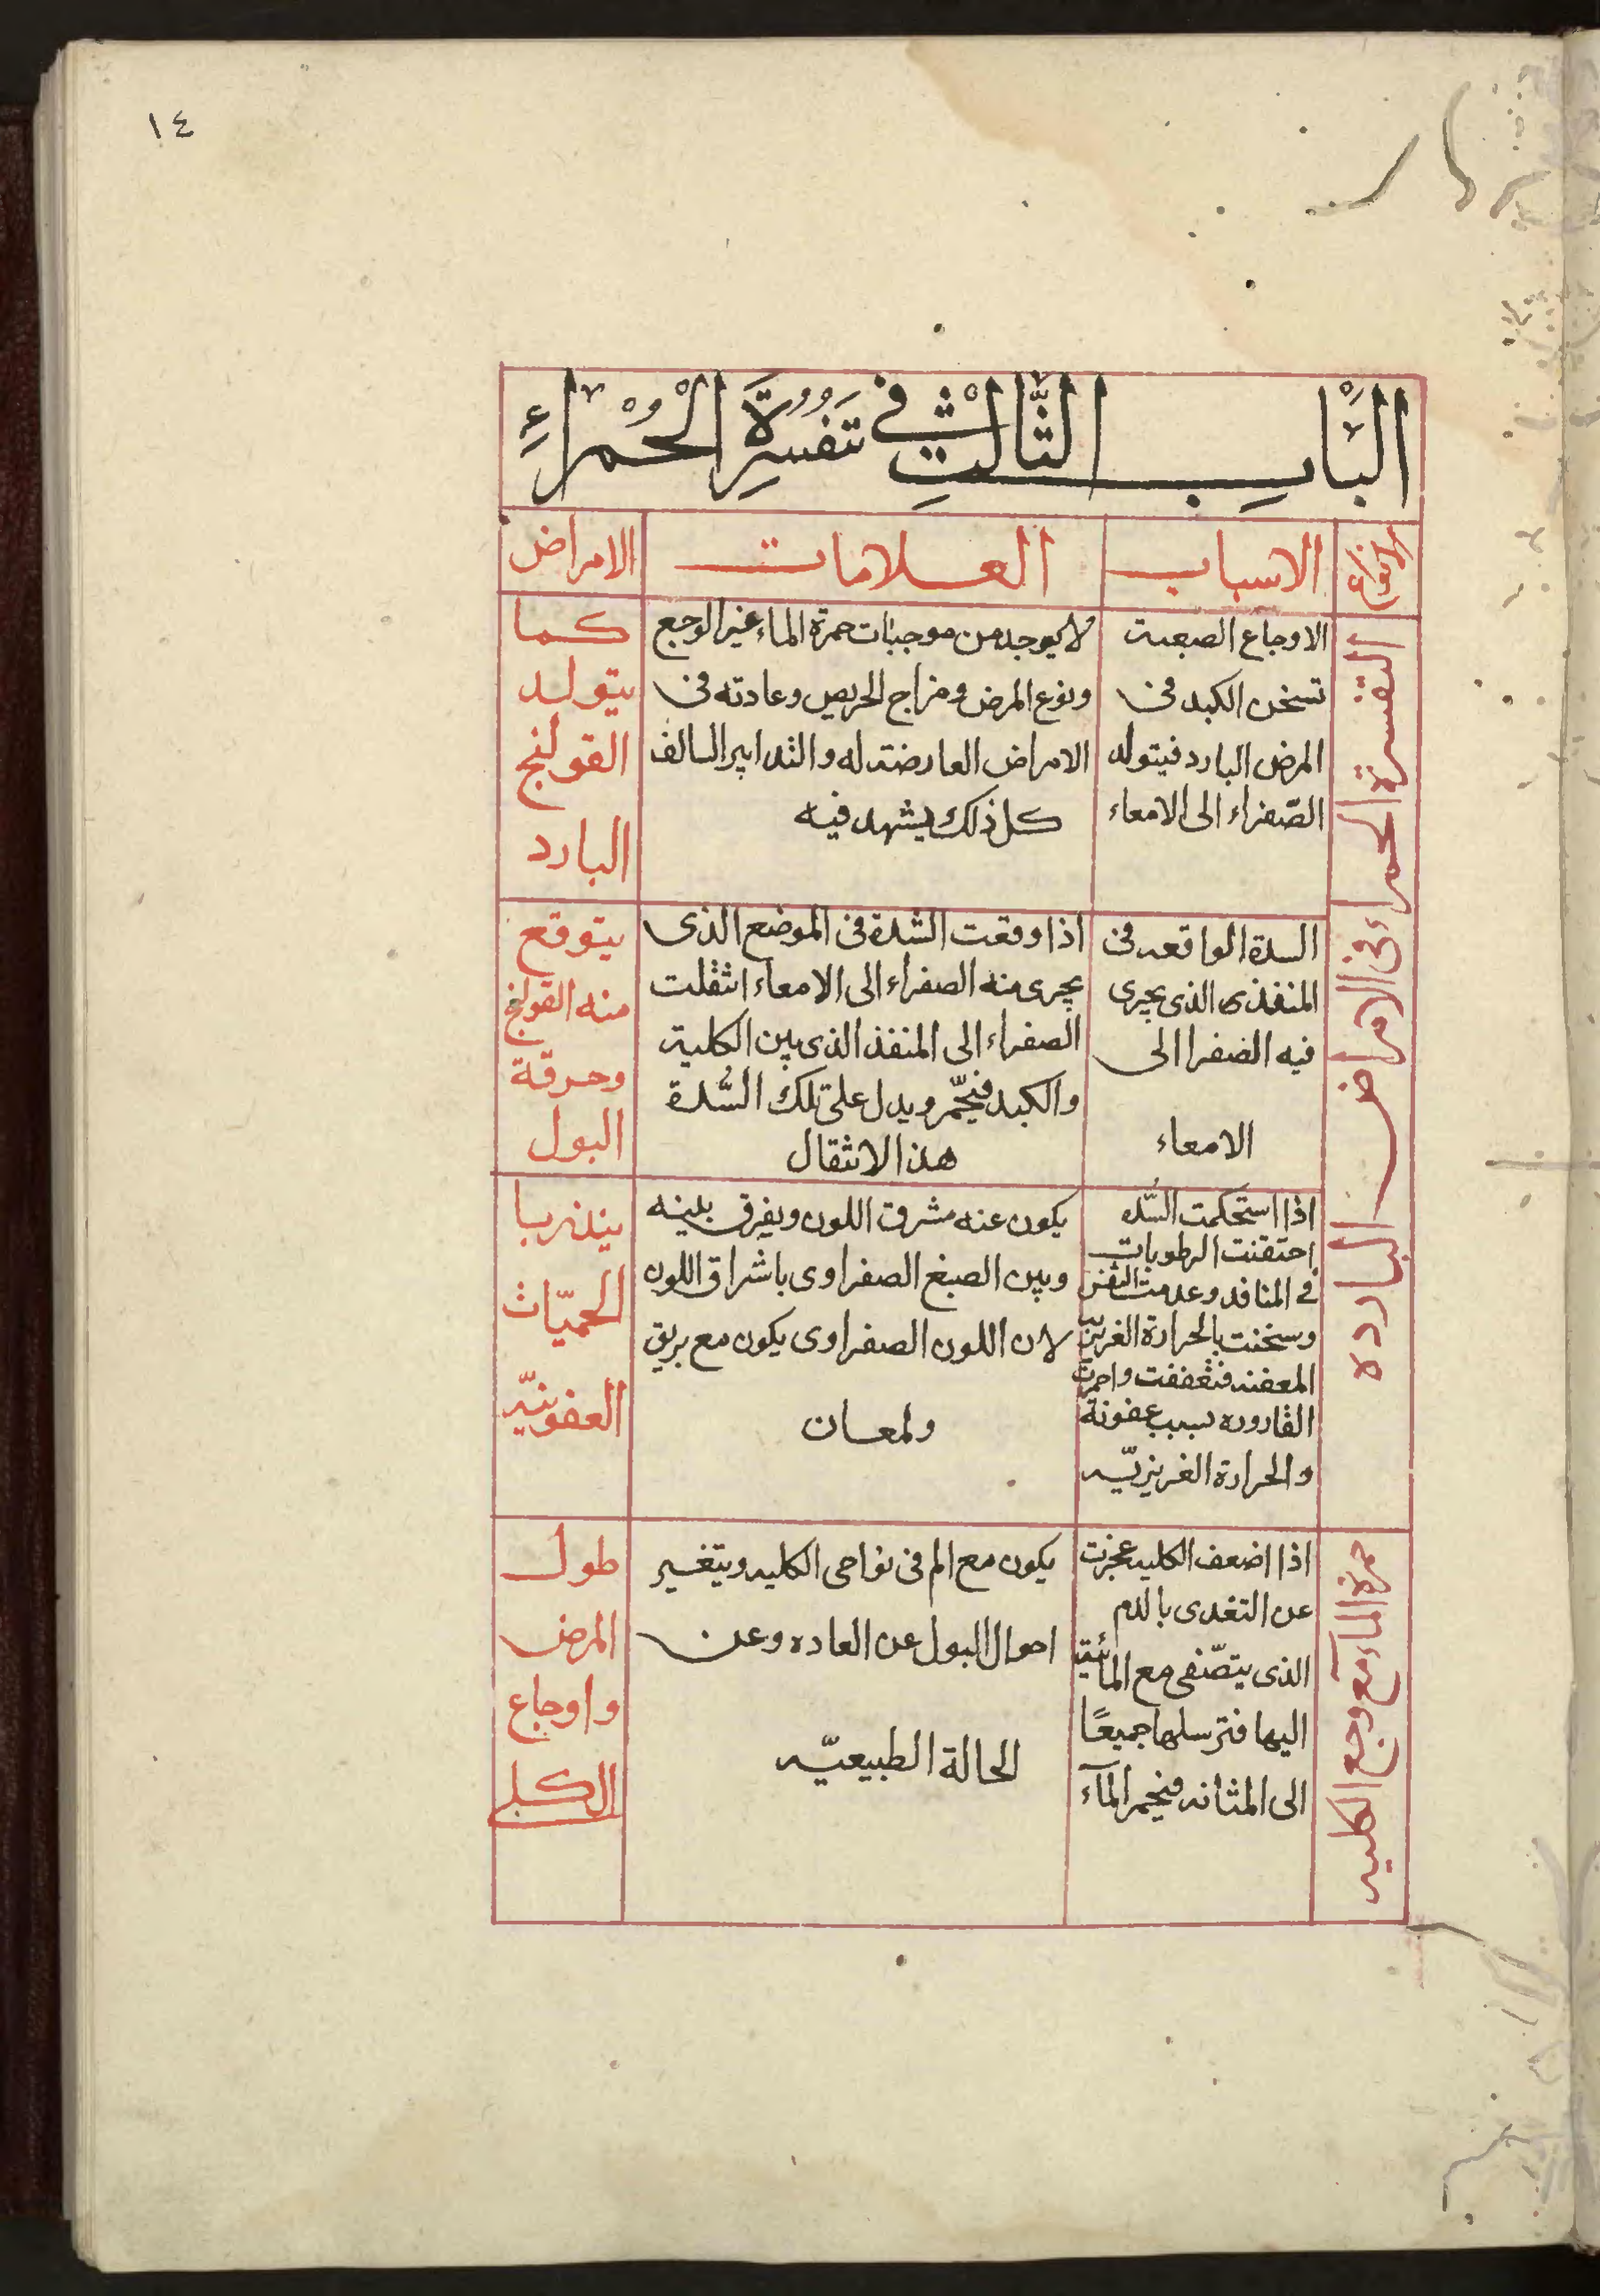 ١٤
الباب الثالث في تفسرة الحمراء
الانواع
الاسباب
العلامات
الامراض
التفسرة الحمراء فى الامراض الباردة
الاوجاع الصعبة
تسخن الكبد فى
المرض البارد فيتولد
الصّفراء الى الامعاء
لا يوجد من موجبات حمرة الماء غير الوجع
ونوع المرض ومزاج الحريص وعادته فى
الامراض العارضة له والتدابير السالف
كل ذلك يشهد فيه
كما
يتولد
القولنج
البارد
السدة الواقعه فى
المنفذى الذى يجرى
فيه الصفرا الى
الامعاء
اذا وقعت الشدة فى الموضع الذى
يجرى منه الصفراء الى الامعاء انثقلت
الصفراء الى المنفذ الذى بين الكلية
والكبد فيحمّر ويدل على تلك السُّدة
هذا الانثقال
يتوقع
منه القولنج
وحرقة
البول
اذا استحكمت السُّده
احتقنت الرطوبات
فى المنافد وعدمت التنفس
وسخنت بالحرارة الغريبة
المعفنه فتعففت واحمرت
القاروره بسبب عفونة
والحرارة الغريزيّه
يكون عنه مشرق اللون ويفرق بلينه
وبين الصبغ الصفراوى باشراق اللون
لان اللون الصفراوى يكون مع بريق
ولمعان
ينذر با
الحميّات
العفونيّه
حمرة المآء مع وجع الكليه
اذا اضعف الكليه عجزت
عن التغدى بالدم
الذى يتصّفى مع المائية
اليها فترسلها جميعًا
الى المثانه فيحمر المآء
يكون مع الم فى نواحى الكليه ويتغير
احوال البول عن العاده وعن
الحالة الطبيعيّه
طول
المرض
واوجاع
الكلى